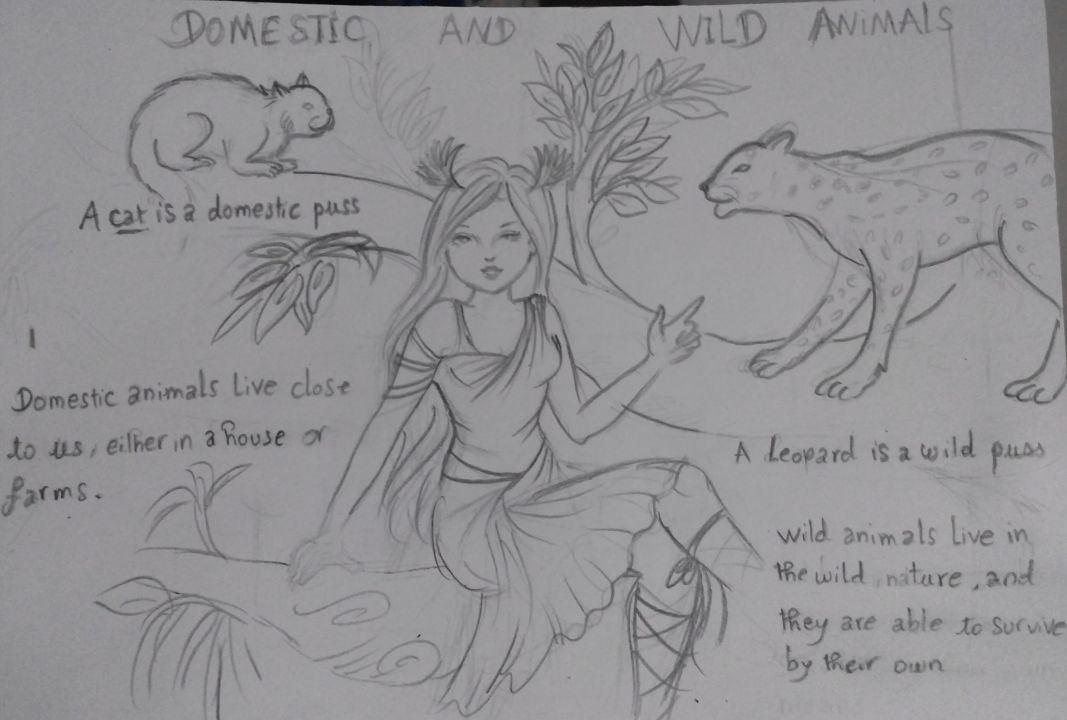 DOMESTIC AND WILD ANIMALS
A cat is a domestic puss
Domestic animals live close
to us, either in a house or
farms.
A leopard is a wild puss
wild animals live in
the wild nature, and
they are able to survive
by their own